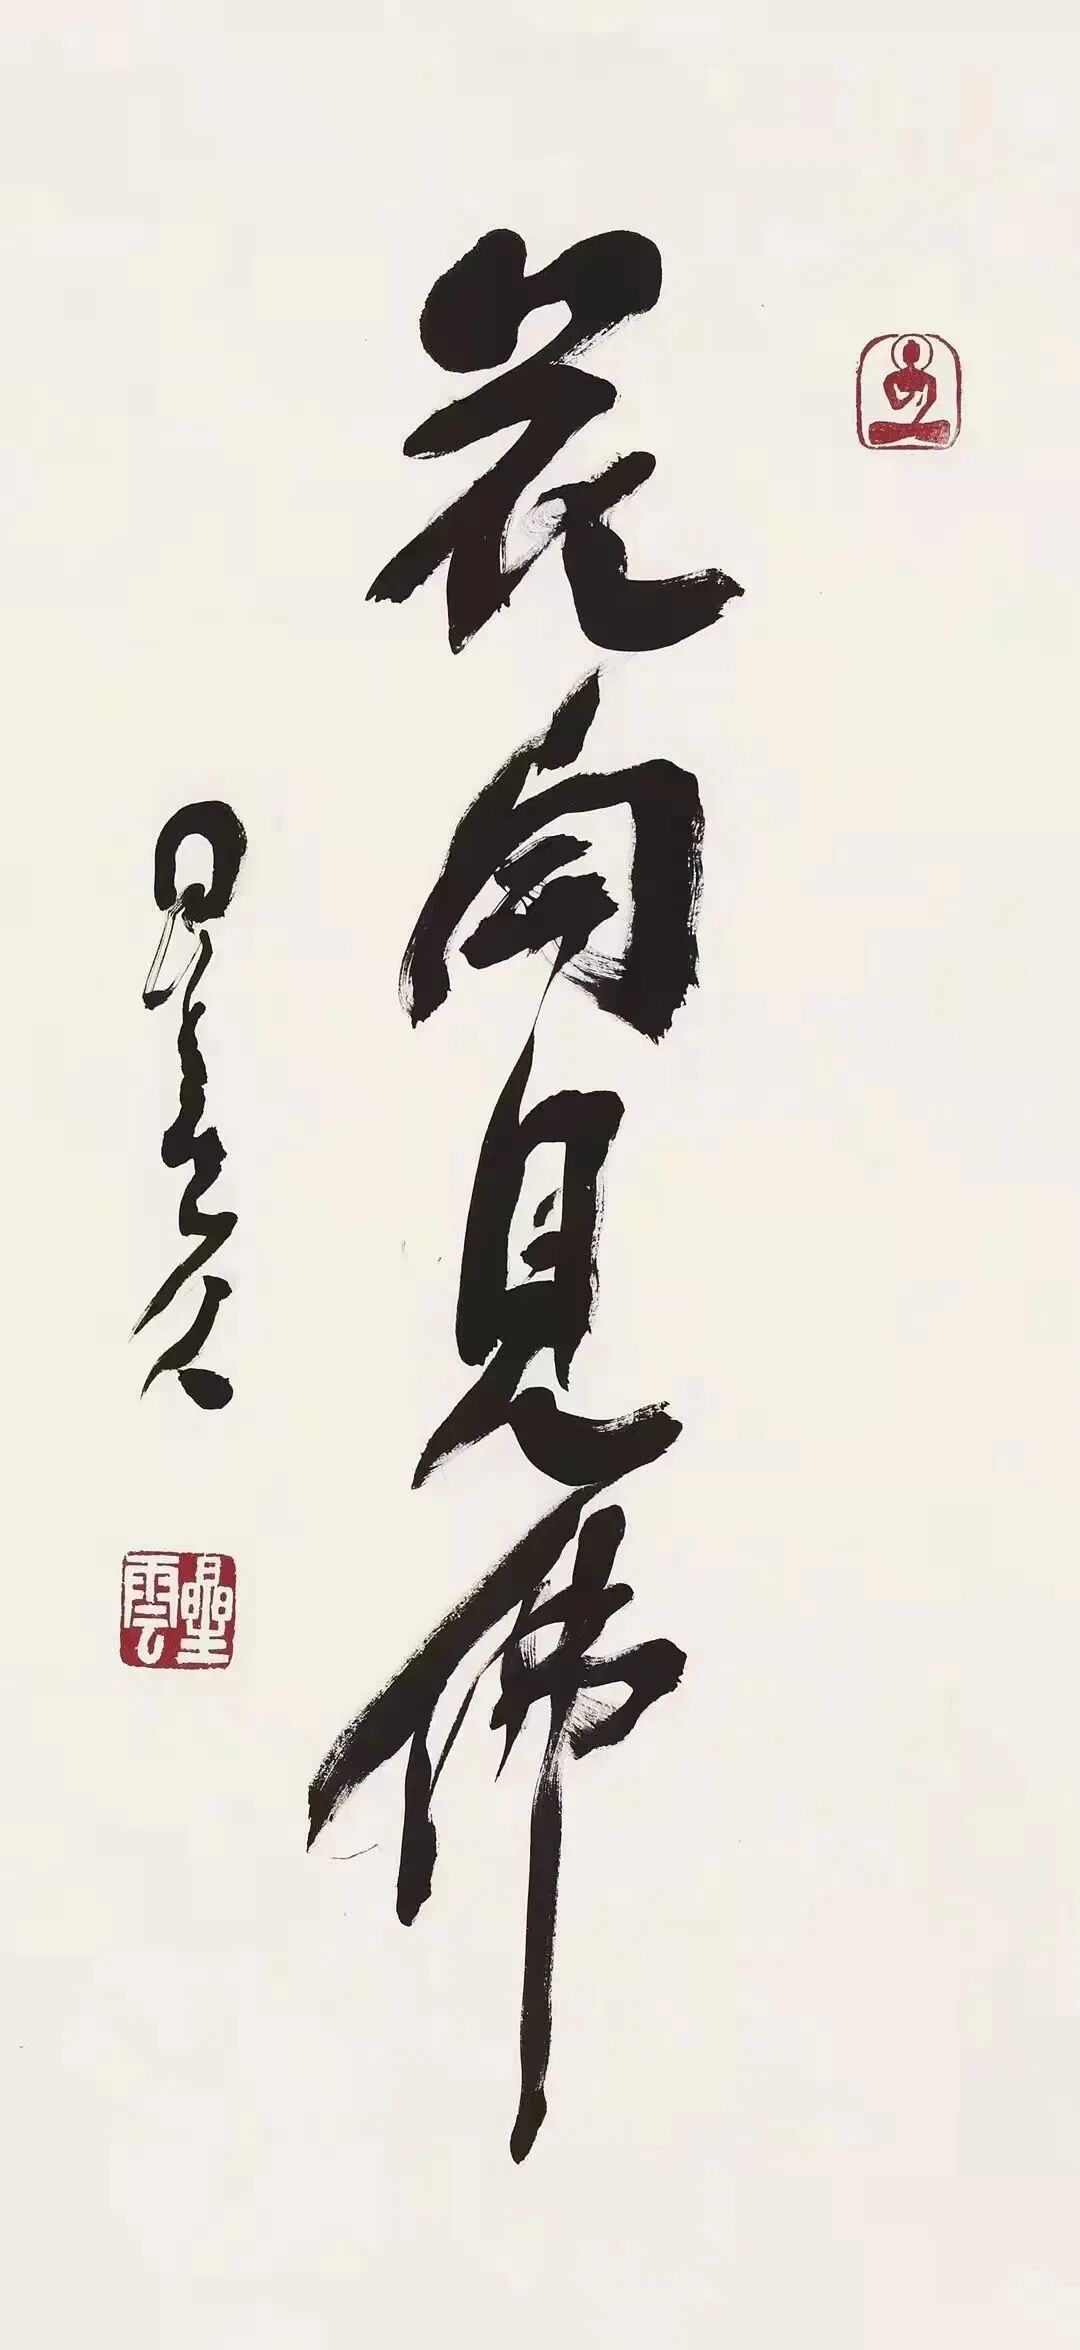 花開見佛
星雲
星雲